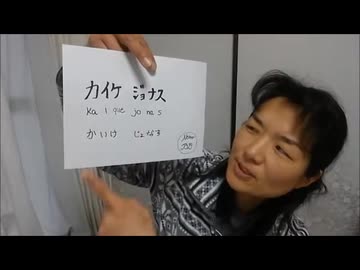 カイケ ジョナス
kaique jonas
かいけ じょなす